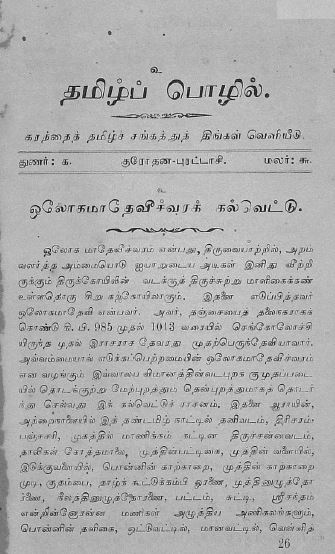 உ
தமிழ்ப் பொழில்.
கரந்தைத் தமிழ்ச் சங்கத்துத் திங்கள் வெளியீடு.
துணர்: ௧. குரோதன-புரட்டாசி. மலர்: ௬.
உ
ஒலோகமாதேவீச்வரக் கல்வெட்டு.
ஒலோக மாதேவீச்வரம் என்பது, திருவையாற்றில், அறம்
வளர்த்த அம்மையொடு ஐயாறுடைய அடிகள் இனிது வீற்றி
ருக்கும் திருக்கோயிலின் வடக்குத் திருச்சுற்று மாளிகைக்கண்
உள்ளதொரு சிறு கற்கோயிலாகும். இதனை எடுப்பித்தவர்
ஒலோகமாதேவி என்பவர். அவர், தஞ்சைமாத் தலைநகராகக்
கொண்டு கி. பி. 985 முதல் 1013 வரையில் செங்கோலோச்சி
யிருந்த முதல் இராசராச தேவரது முதற்பெருந்தேவியாவார்.
அவ்வம்மையால் எடுக்கப்பெற்றமையின் ஒலோகமாதேவீச்வரம்
என வழங்கும் இவ்வாலய விமானத்தின் வடபுறக் குமுதப்படை
யில் தொடங்குற்று மேற்புறத்தும் தென்புறத்துமாகத் தொடர்
ந்து செல்வது இக் கல்வெட்டுச் சாசனம். இதனை ஆராயின்,
அற்றைநாளையில் இத் தண்டமிழ் நாட்டில் தனிவடம், திரிசரம்-
பஞ்சசரி, முகத்தில் மாணிக்கம் கட்டின திருச்சன்னவடம்,
தாலிகள் கோத்தமாலை, முத்தின்பட்டிகை, முத்தின் வளையில்,
இடுக்குவளையில், பொன்னின் காற்காறை, முத்தின் காற்காறை
முடி, குதம்பை, தாழ்க் கூட்டுக்கம்பி ஓரணை, முத்தினுழுத்தோ
ரணை, நீலத்தினுழுத்தோரணை, பட்டம், சுட்டி, ஸ்ரீசந்தம்
என்றின்னோரன்ன மணிகள் அழுத்திய அணிகலங்களும்,
பொன்னின் தளிகை, ஒட்டுவட்டில், மானவட்டில், வெள்ளித்
26